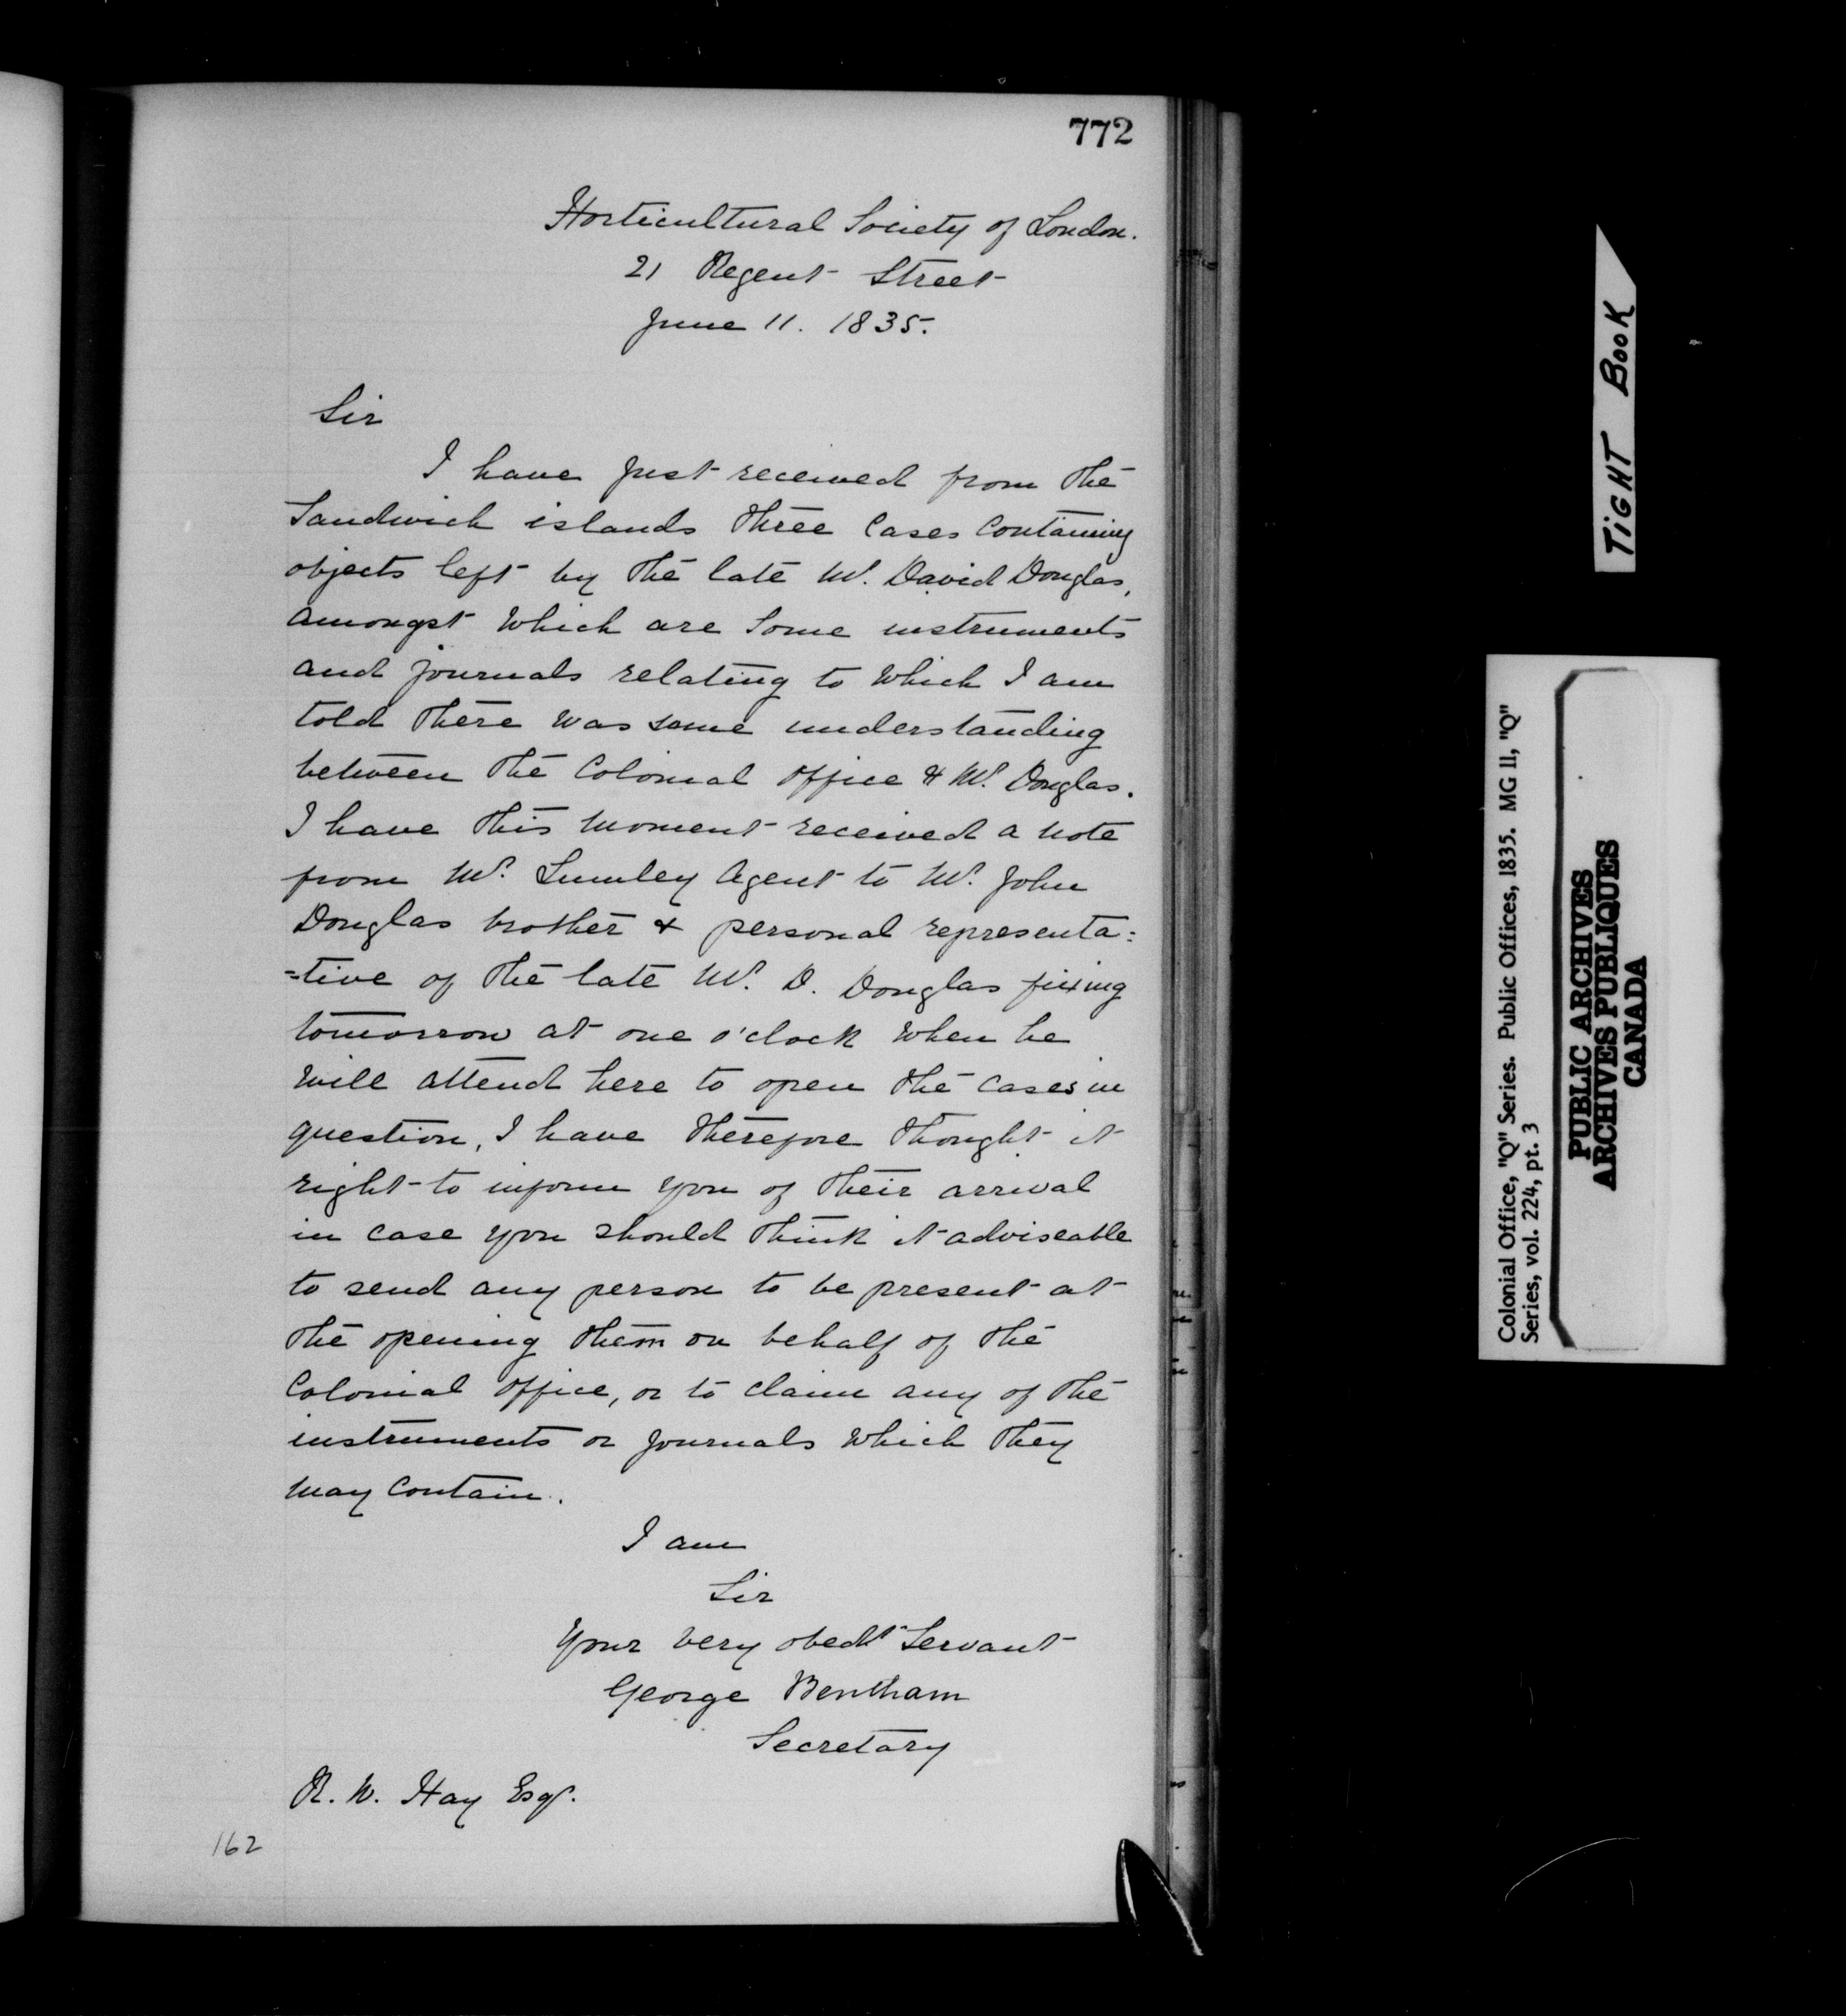 772
Horticultural Society of London.
21 Regent Street
June 11. 1835.
Sir
I have just received from the
Sandwich islands three Cases Containing
objects left by the late Mr. David Douglas,
amongst which are Some instruments
and journals relating to which I am
told there was some understanding
between the Colonial Office & Mr. Douglas.
I have this moment received a note
from Mr. Lumley Agent to Mr. John
Douglas brother & personal representa=
=tive of the late Mr. D. Douglas fixing
tomorrow at one o'clock when he
will attend here to open the cases in
question, I have therefore thought it
right to inform you of their arrival
in case you should think it adviseable
to send any person to be present at
the opening them on behalf of the
Colonial Office, or to claim any of the
instruments or journals which they
may Contain.
I am
Sir
Your very obedt Servant
George Bentham
Secretary
R. W. Hay Esqr.
162
TIGHT BOOK
Colonial Office, "Q" Series. Public Offices, 1835. MG 11, "Q"
Series, vol. 224, pt. 3
PUBLIC ARCHIVES
ARCHIVES PUBLIQUES
CANADA